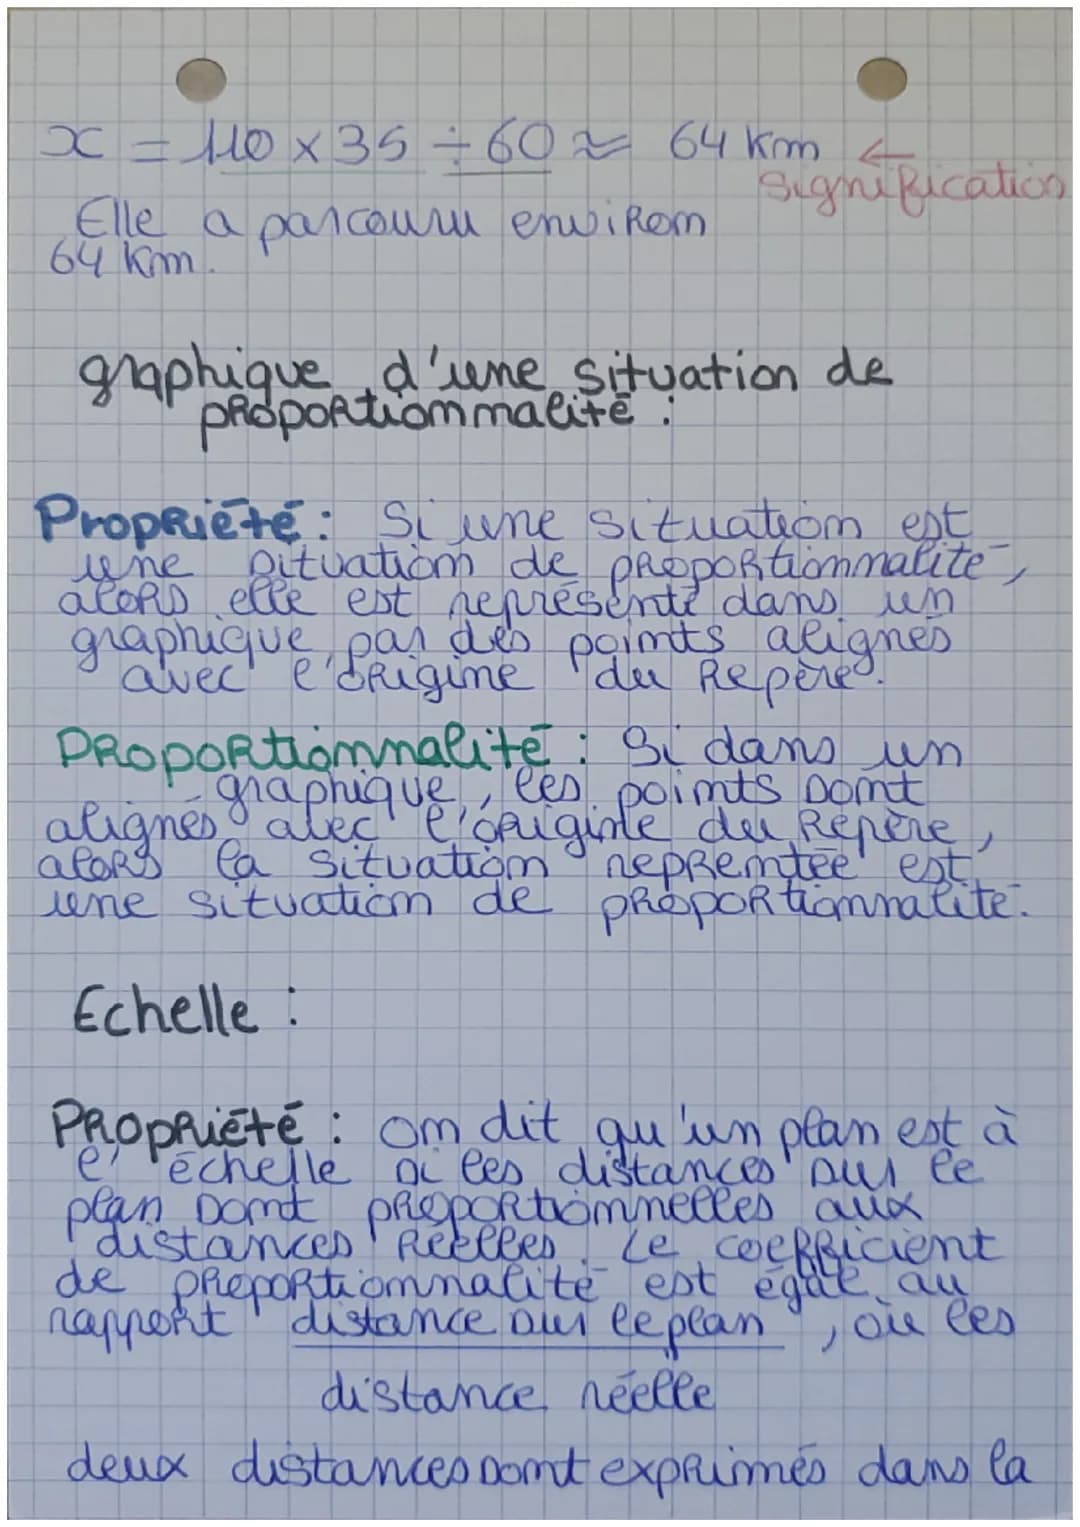 x = 110 × 35 ÷ 60 ≈ 64 km ←
signification
Elle a parcouru environ
64 km.
graphique d'une situation de
proportionnalité :
Propriété : Si une situation est
une situation de proportionnalité,
alors elle est représenté dans un
graphique par des points alignés
avec l'origine du Repère.
Proportionnalité : Si dans un
graphique, les points sont
alignés avec l'origine du Repère,
alors la situation repremtée est
une situation de proportionnalité.
Echelle :
Propriété : on dit qu'un plan est à
l'échelle si les distances sur le
plan sont proportionnelles aux
distances réelles. Le coefficient
de proportionnalité est égal au
rapport distance sur le plan, où les
distance réelle
deux distances sont exprimés dans la